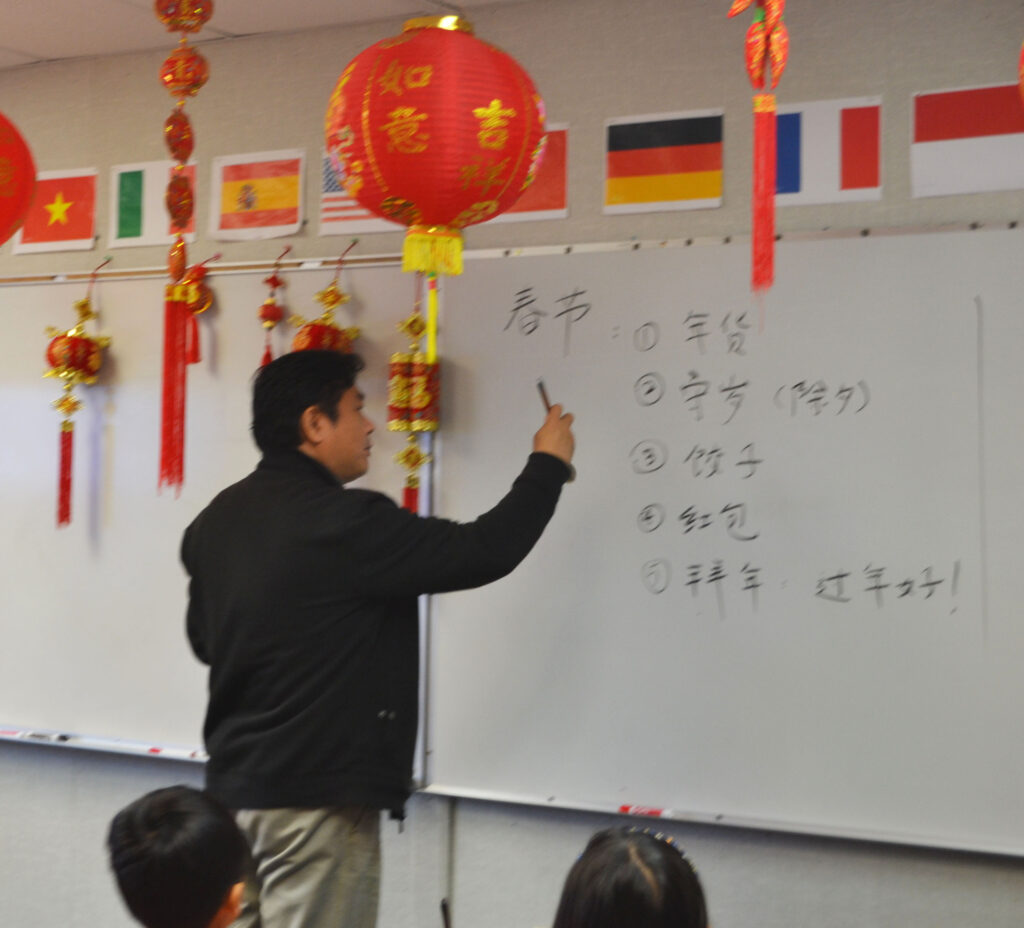 如意
吉祥
春节：① 年货
② 守岁（除夕）
③ 饺子
④ 红包
⑤ 拜年：过年好！